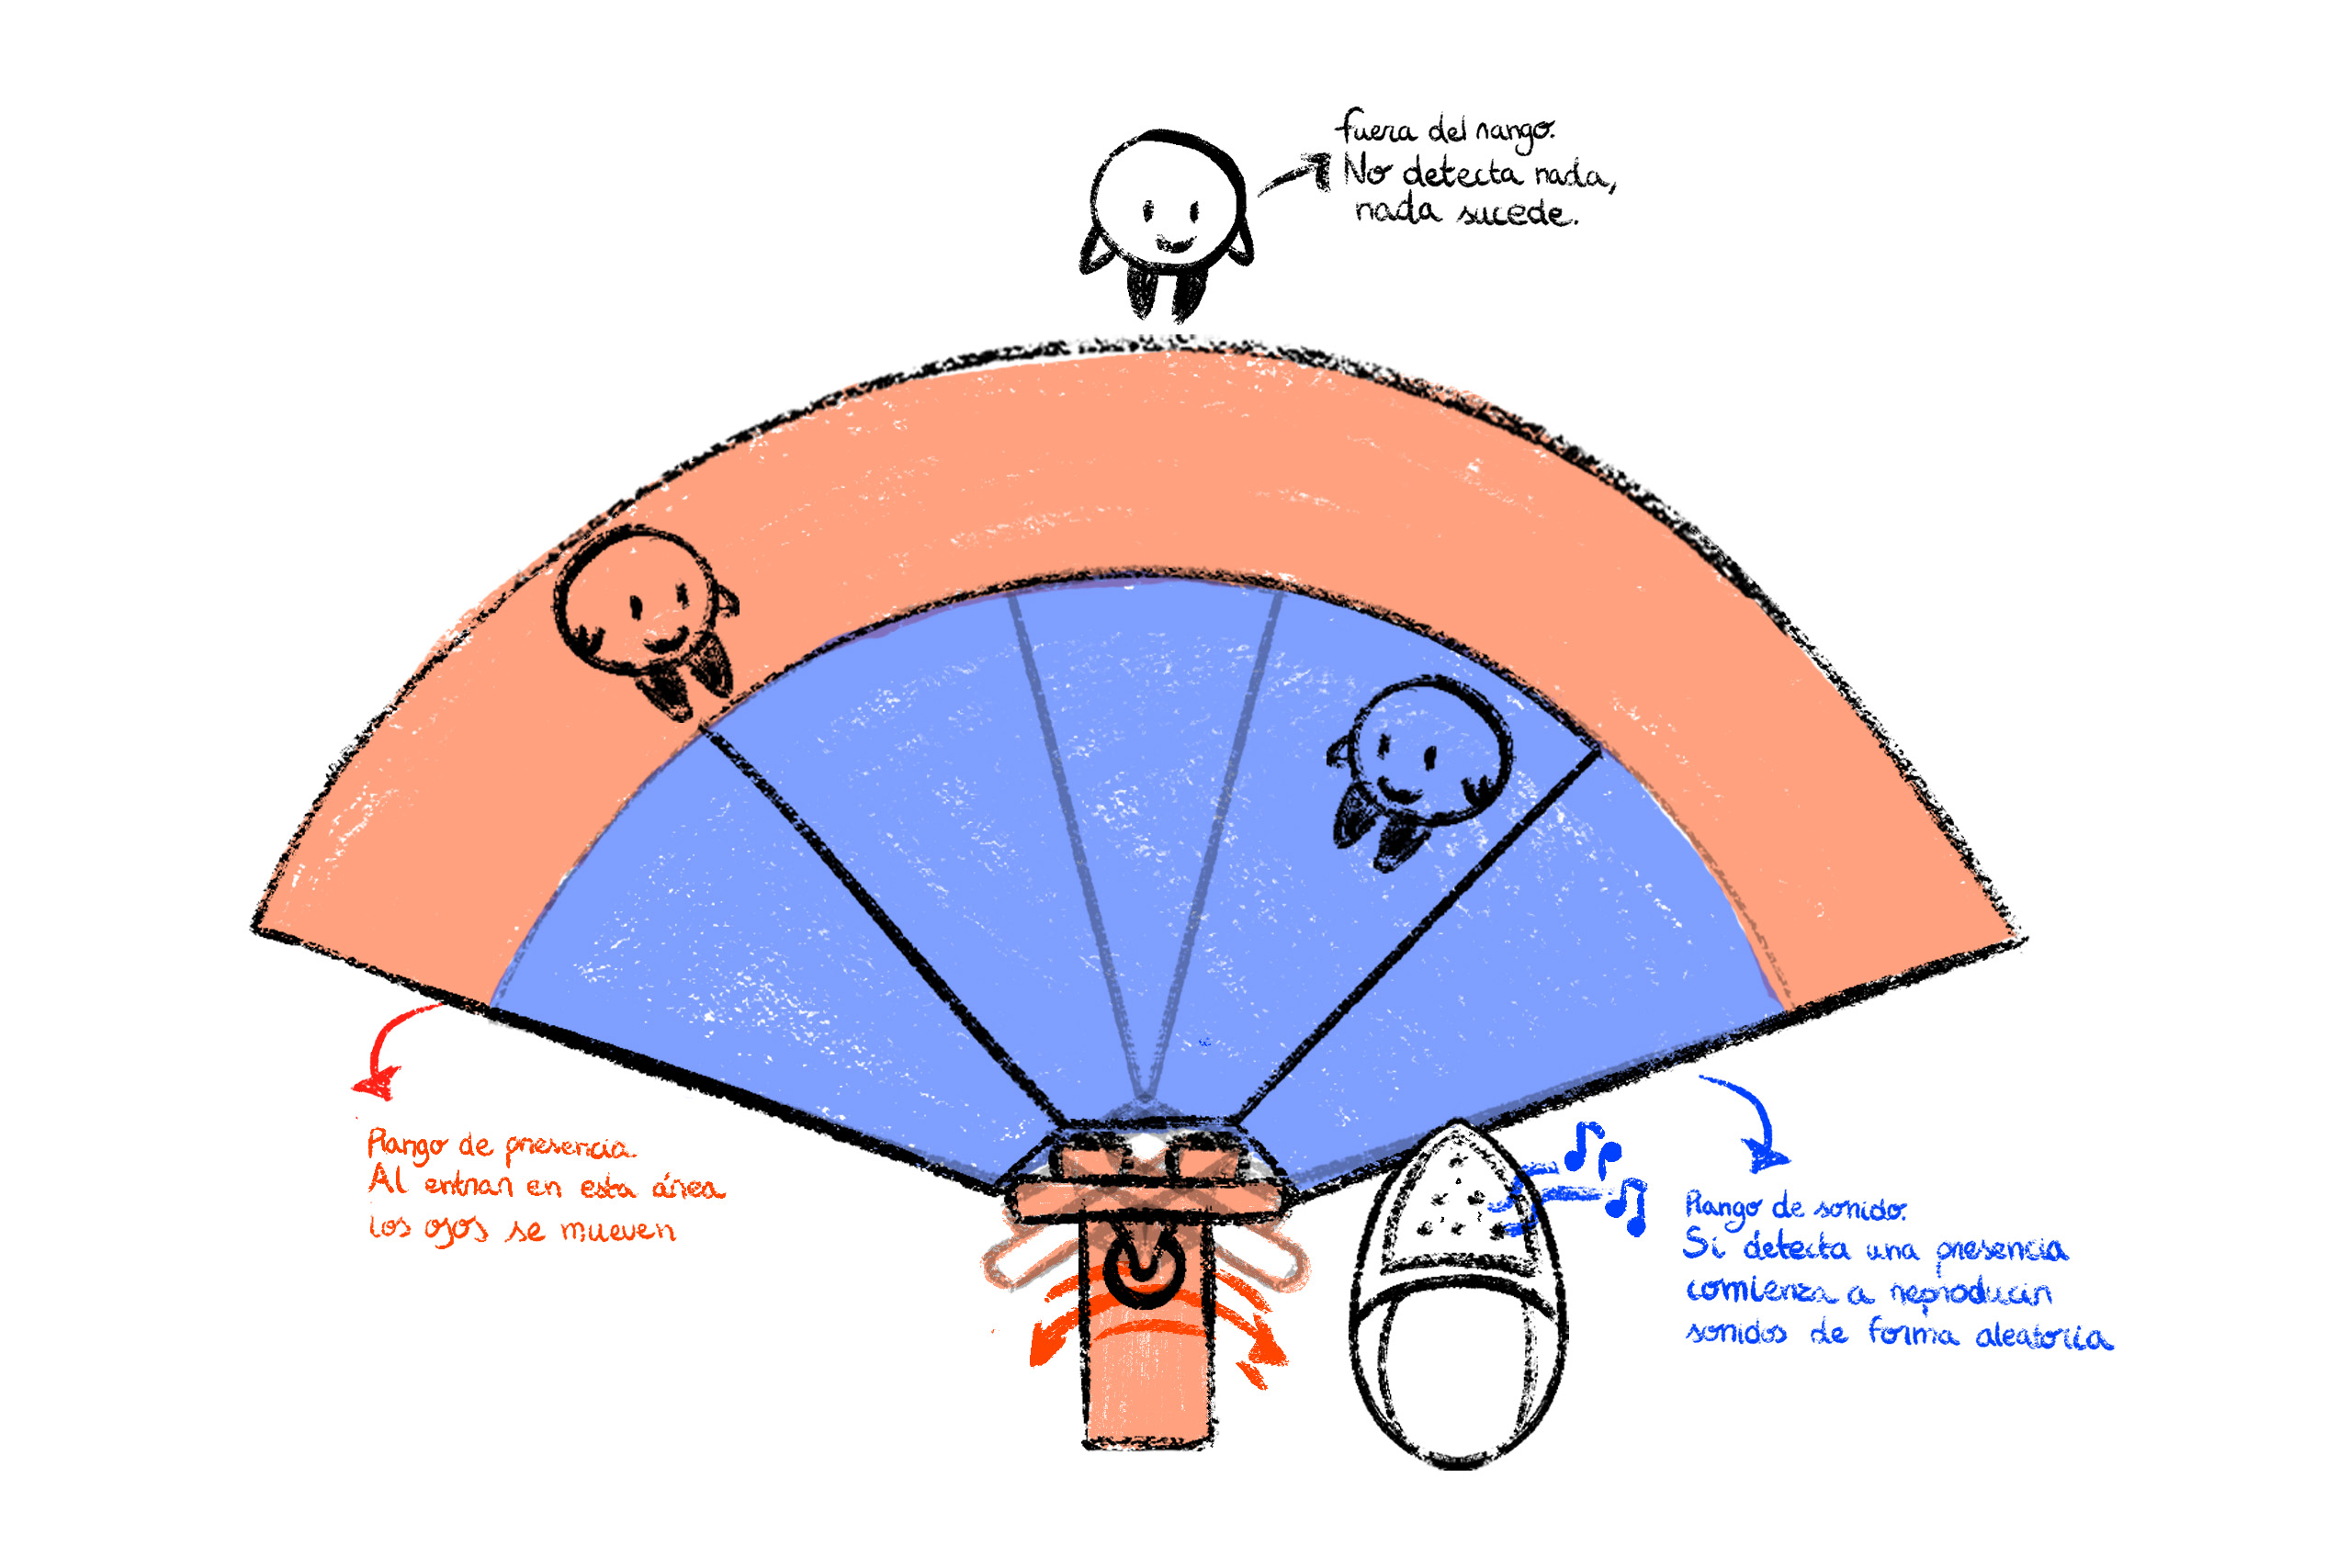 fuera del rango.
No detecta nada,
nada sucede.
Rango de presencia.
Al entrar en esta área
los ojos se mueven
Rango de sonido.
Si detecta una presencia
comienza a reproducir
sonidos de forma aleatoria